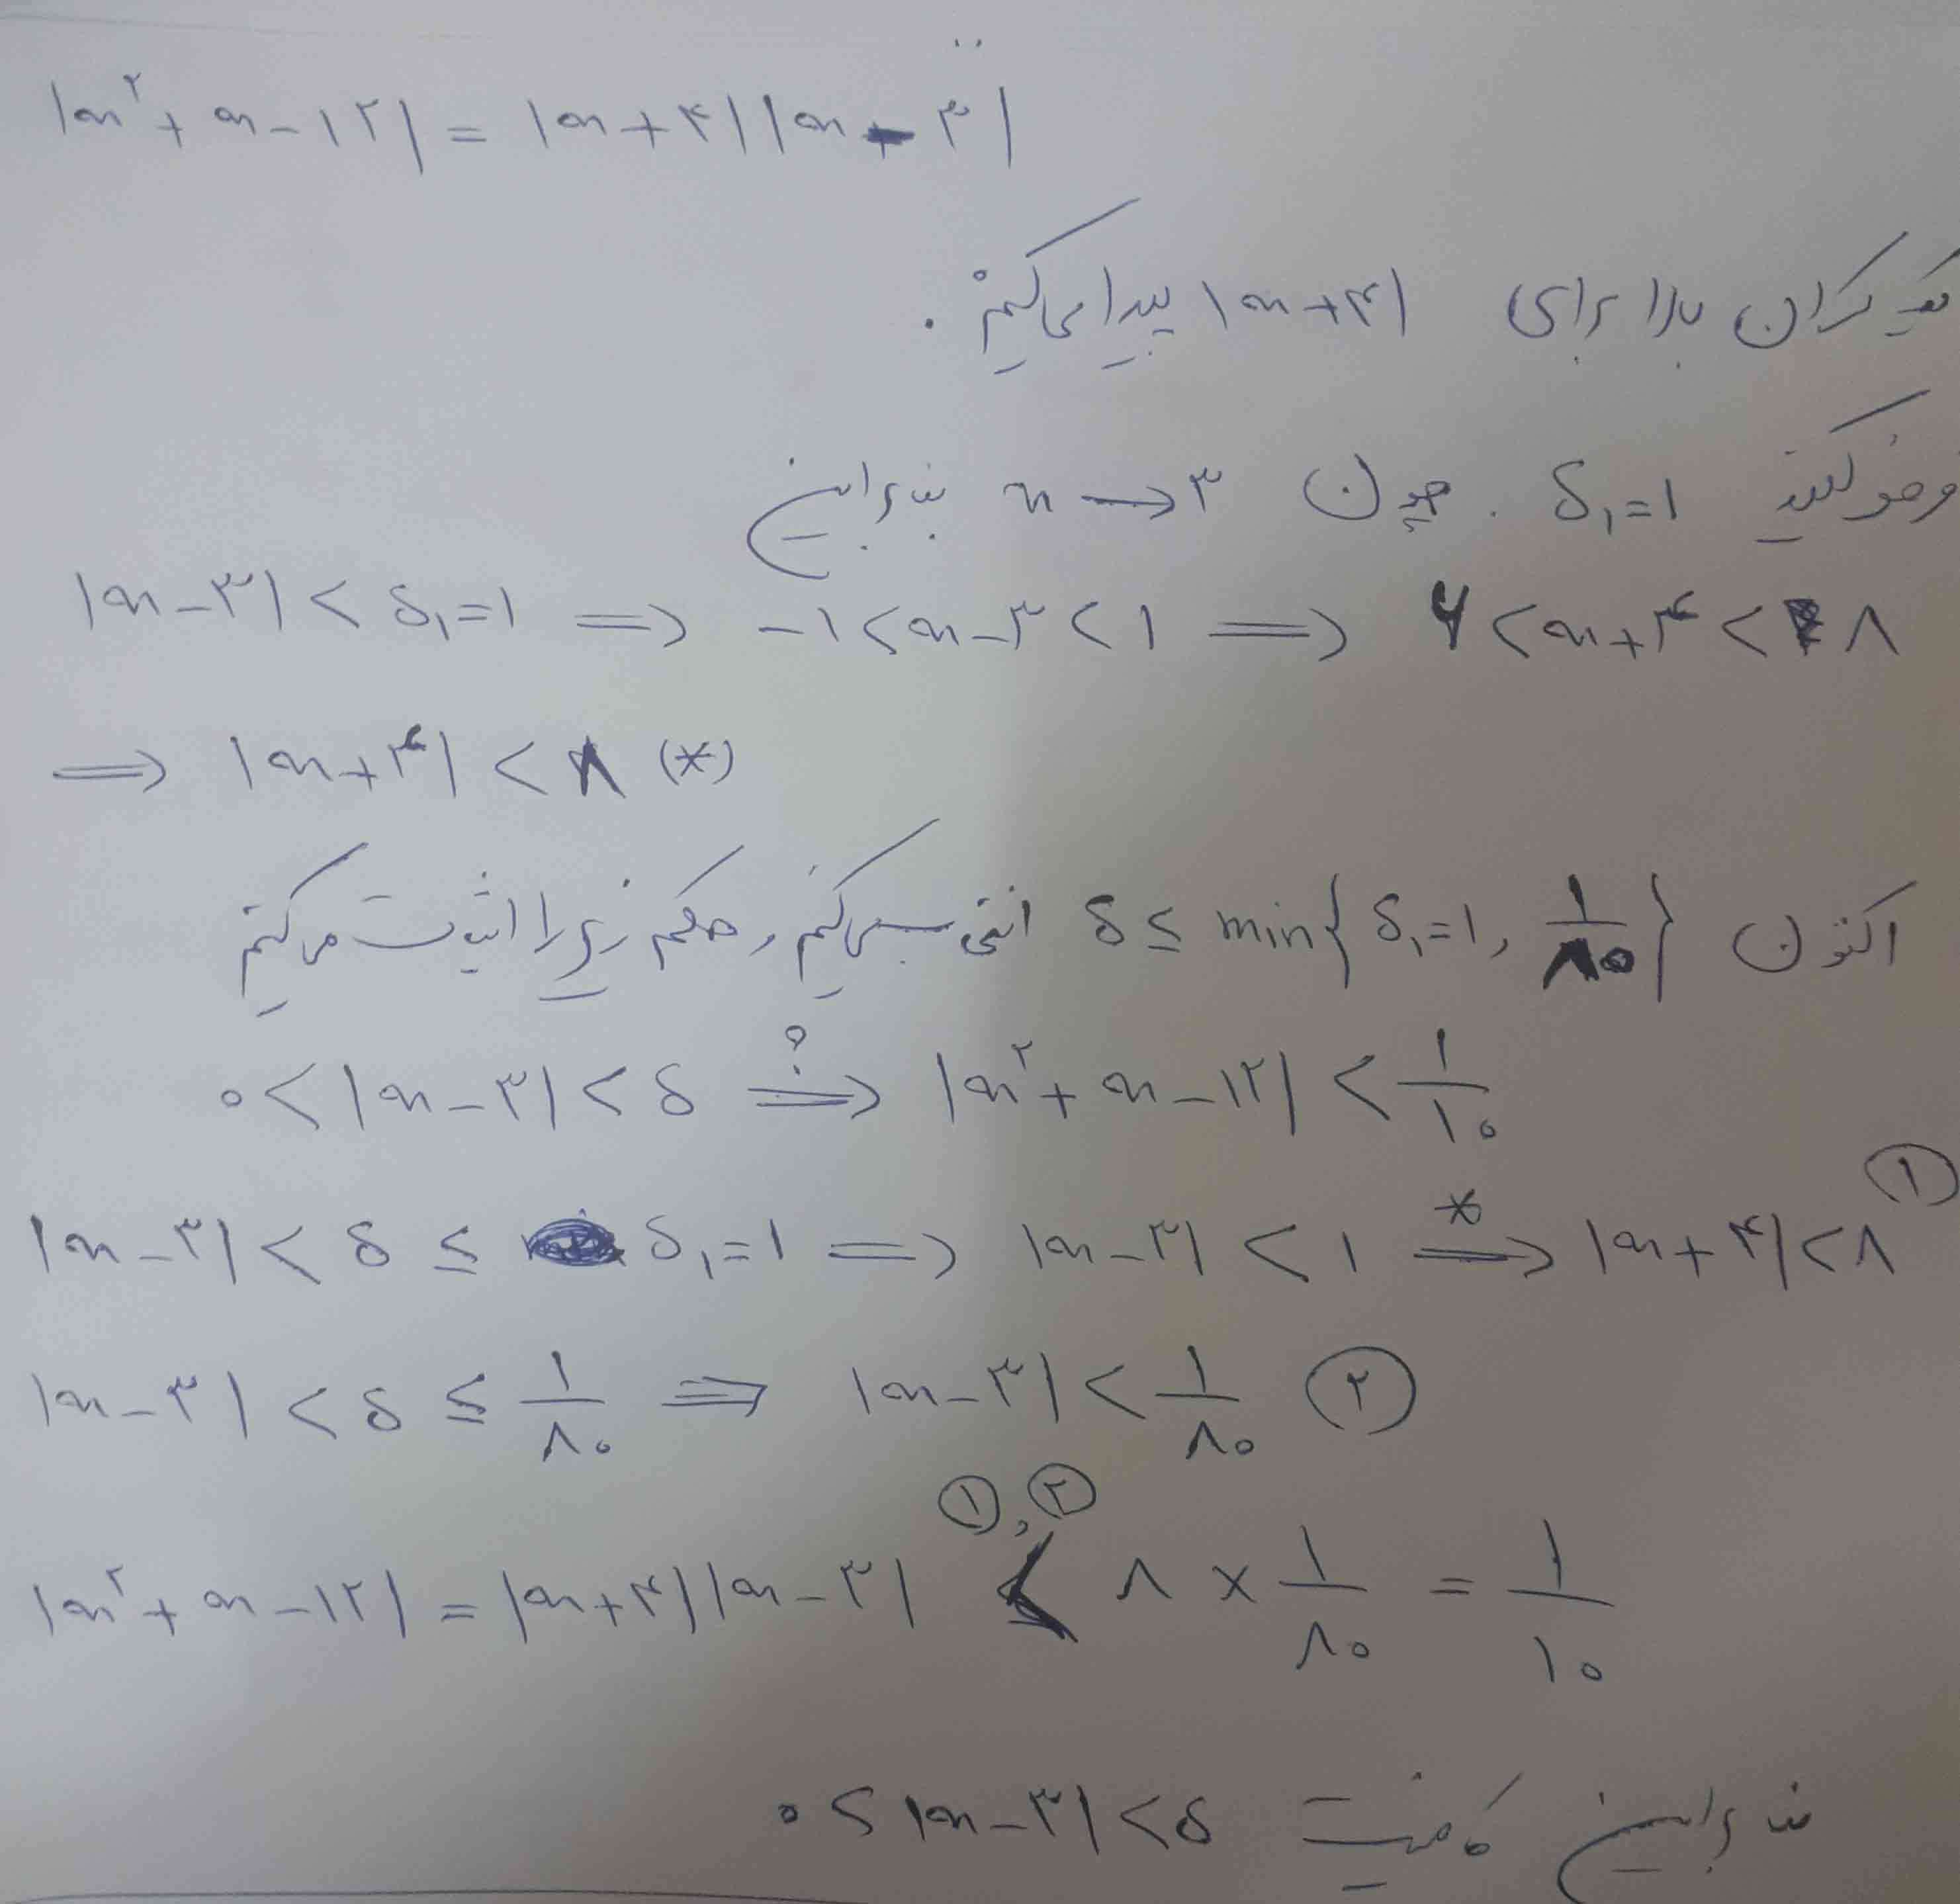 |x² + x - ۱۲| = |x + ۴||x - ۳|
یک کران بالا برای |x + ۴| پیدا می‌کنیم.
فرض کنید δ₁=۱. چون x → ۳ بنابراین
|x - ۳| < δ₁=۱ ⟹ -۱ < x - ۳ < ۱ ⟹ ۶ < x + ۴ < ۸
⟹ |x + ۴| < ۸ (*)
اکنون δ ≤ min{δ₁=۱, ۱/۸۰} انتخاب می‌کنیم و حکم زیر را اثبات می‌کنیم
۰ < |x - ۳| < δ ⟹؟ |x² + x - ۱۲| < ۱/۱۰
|x - ۳| < δ ≤ δ₁=۱ ⟹ |x - ۳| < ۱ ⟹* |x + ۴| < ۸ ①
|x - ۳| < δ ≤ ۱/۸۰ ⟹ |x - ۳| < ۱/۸۰ ②
①,②
|x² + x - ۱۲| = |x + ۴||x - ۳| < ۸ × ۱/۸۰ = ۱/۱۰
بنابراین کافیست ۰ < |x - ۳| < δ